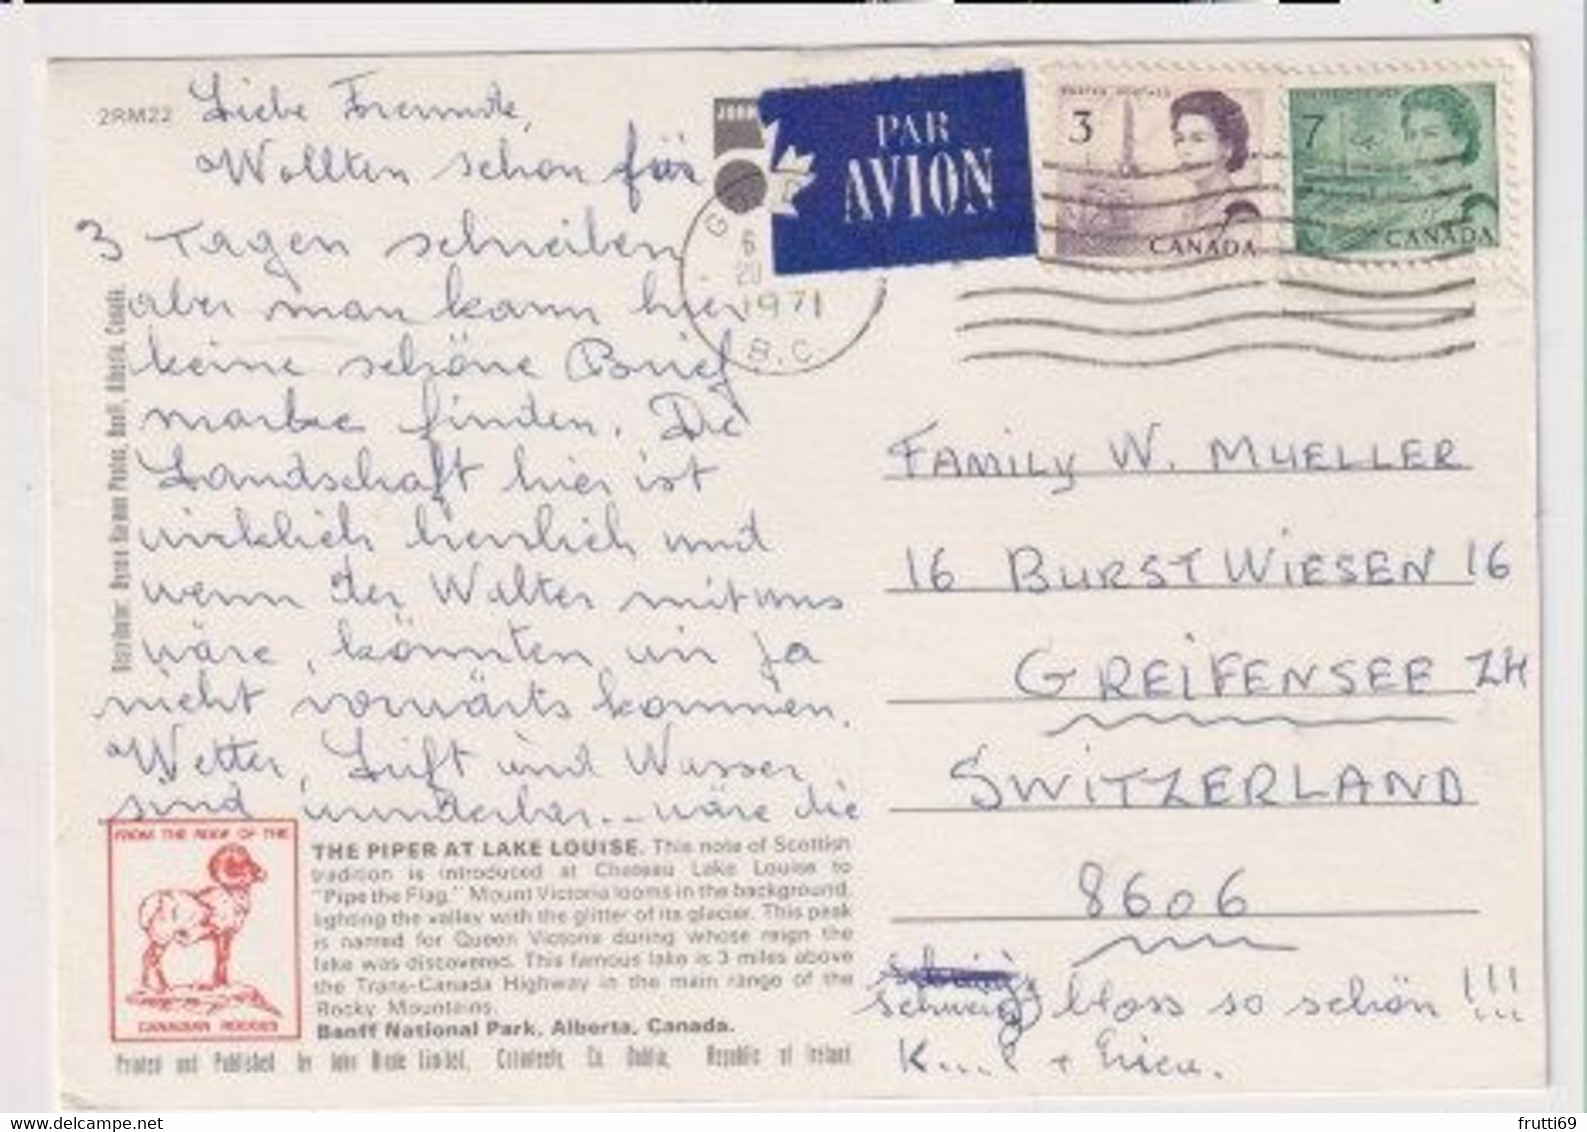 2RM22
Liebe Freunde,
Wollten schon für
3 Tagen schreiben
aber man kann hier
keine schöne Brief
marke finden. Die
Landschaft hier ist
wirklich herrlich und
wenn der Walter mit uns
wäre, könnten wir ja
nicht vorwärts kommen.
Wetter, Luft und Wasser
sind wunderbar... wäre die
Schweiz bloss so schön !!!
K...l +
PAR
AVION
3
CANADA
7
CANADA
6
20
1971
B.C.
FAMILY W. MUELLER
16 BURSTWIESEN 16
GREIFENSEE ZH
SWITZERLAND
8606
Distributor: Byron Harmon Photos, Banff, Alberta, Canada.
FROM THE ROOF OF THE
CANADIAN ROCKIES
THE PIPER AT LAKE LOUISE. This note of Scottish
tradition is introduced at Chateau Lake Louise to
"Pipe the Flag." Mount Victoria looms in the background,
lighting the valley with the glitter of its glacier. This peak
is named for Queen Victoria during whose reign the
lake was discovered. This famous lake is 3 miles above
the Trans-Canada Highway in the main range of the
Rocky Mountains.
Banff National Park, Alberta, Canada.
Printed and Published by John Hinde Limited, Cabinteely, Co. Dublin, Republic of Ireland
delcampe.net
frutti69